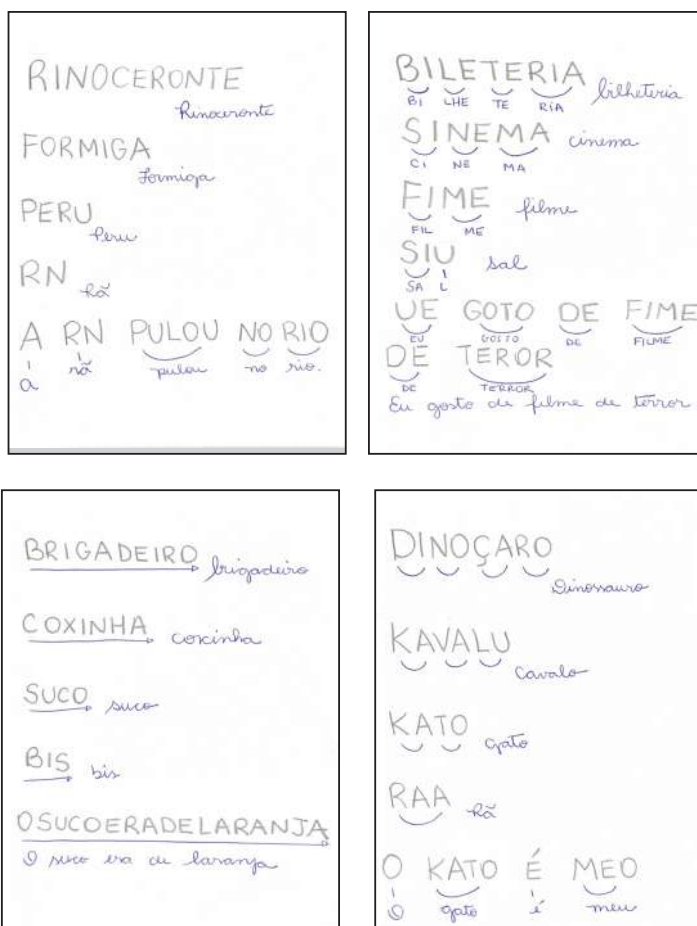 RINOCERONTE
Rinoceronte
FORMIGA
Formiga
PERU
Peru
RN
Rã
A RN PULOU NO RIO
A rã pulou no rio.
BILETERIA bilheteria
BI LHE TE RIA
SINEMA cinema
CI NE MA
FIME filme
FIL ME
SIU sal
SA L
UE GOTO DE FIME
EU GOSTO DE FILME
DE TEROR
DE TERROR
Eu gosto de filme de terror
BRIGADEIRO brigadeiro
COXINHA coxinha
SUCO suco
BIS bis
OSUCOERADELARANJA
O suco era de laranja
DINOÇARO
Dinossauro
KAVALU
Cavalo
KATO
gato
RAA
Rã
O KATO É MEO
O gato é meu